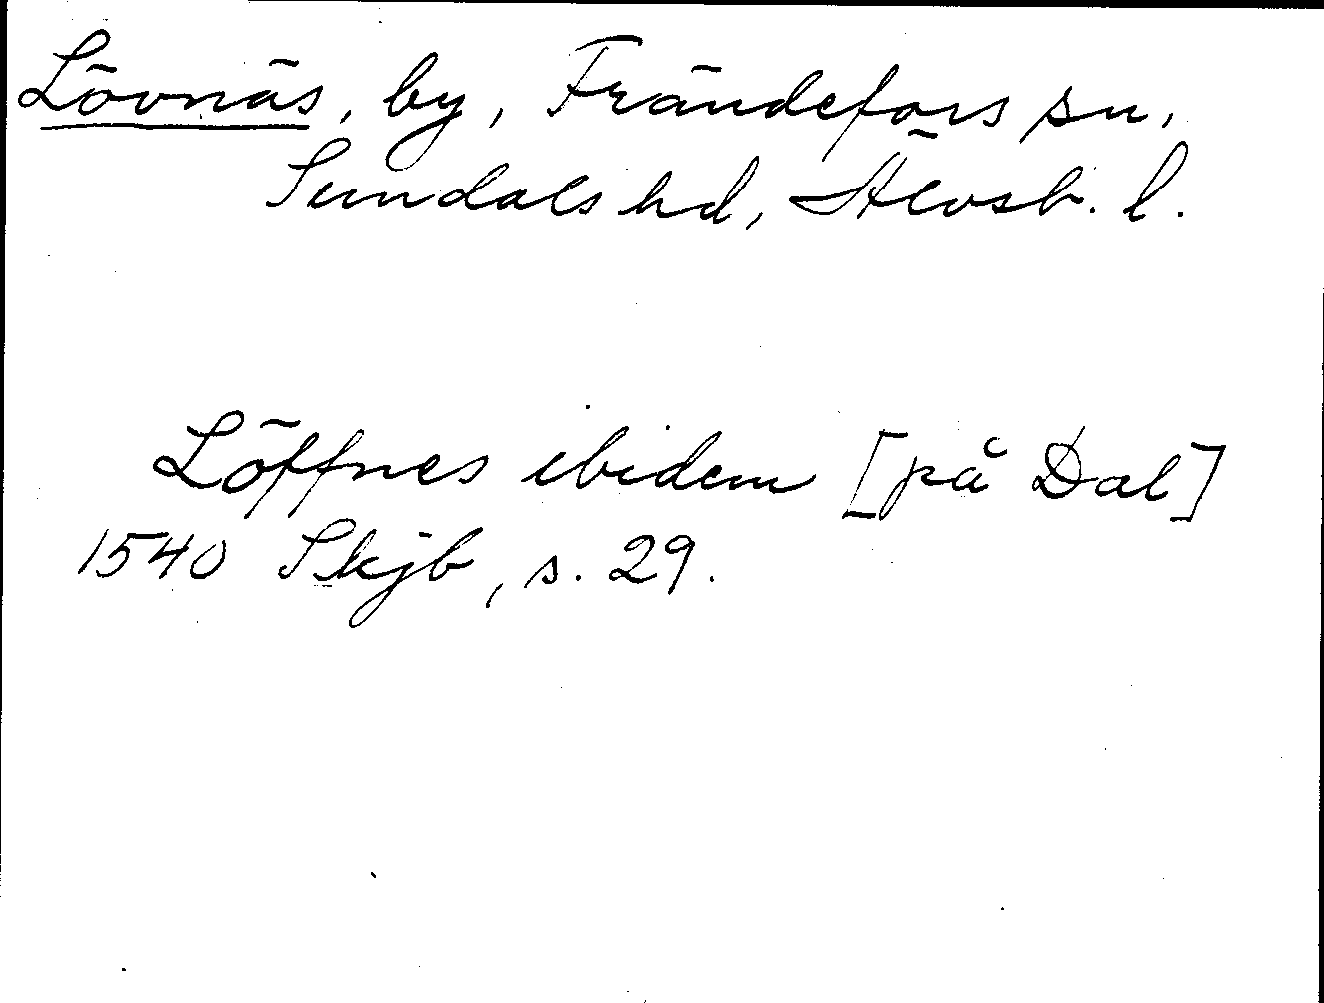 Lövnäs, by, Frändefors sn,
Sundals hd, Älvsb. l.
Löffnes ibidem [på Dal]
1540 Skjb, s. 29.